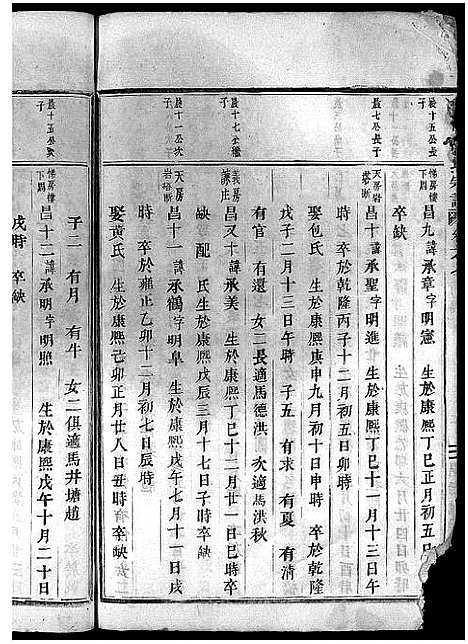 晨十五公長子
悌房樓下周
昌九諱承章字明憲 生於康熙丁巳正月初五日
卒缺
晨七公長子
天房岩塔斷
昌十諱承聖字明進 生於康熙丁巳十一月十三日午
時 卒於乾隆丙子十二月初五日卯時
娶包氏 生於康熙庚申九月初十日申時 卒於乾隆
戊子二月十三日午時 子五 有夏 有清
有官 有還 女二長適馬德洪 次適馬洪秋
晨十七公繼子
義房諫庄
昌又十諱承美 生於康熙丁巳十二月廿一日巳時卒
缺 配 氏生於康熙戊辰三月十七日子時卒缺
晨十一公次子
天房岩塔斷
昌十一諱承鶴字明阜 生於康熙戊午七月十一日戌
時 卒於雍正乙卯十二月初七日辰時
娶黄氏 生於康熙己卯正月廿八日丑時卒缺
子二 有月 有牛 女二俱適馬井塘趙
晨十五公次子
悌房樓下周
昌十二諱承明字明照 生於康熙戊午十月二十日
戌時 卒缺